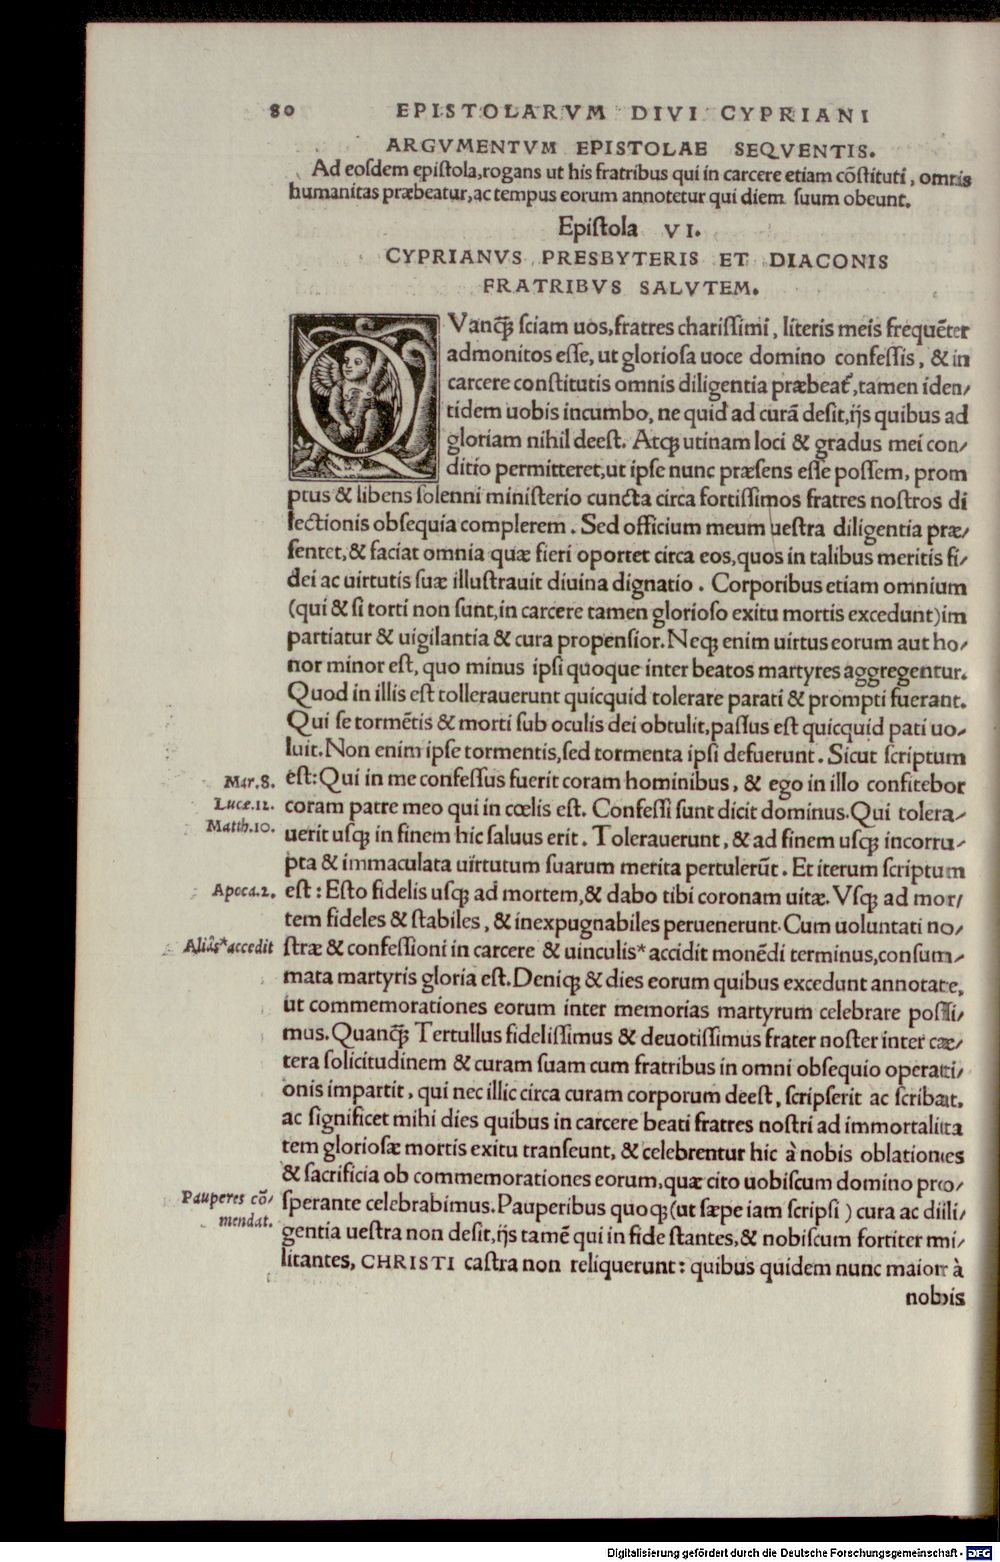 80 EPISTOLARVM DIVI CYPRIANI
ARGVMENTVM EPISTOLAE SEQVENTIS.
Ad eoſdem epiſtola,rogans ut his fratribus qui in carcere etiam cōſtituti, omnis
humanitas præbeatur,ac tempus eorum annotetur qui diem ſuum obeunt.
Epiſtola VI.
CYPRIANVS PRESBYTERIS ET DIACONIS
FRATRIBVS SALVTEM.
QVanq̃ȝ ſciam uos,fratres chariſſimi, literis meis frequẽter
admonitos eſſe, ut glorioſa uoce domino confeſſis, & in
carcere conſtitutis omnis diligentia præbeat᷑,tamen iden/
tidem uobis incumbo, ne quid ad curã deſit,ijs quibus ad
gloriam nihil deeſt. Atqȝ utinam loci & gradus mei con/
ditio permitteret,ut ipſe nunc præſens eſſe poſſem, prom
ptus & libens ſolenni miniſterio cuncta circa fortiſſimos fratres noſtros di
lectionis obſequia complerem. Sed officium meum ueſtra diligentia præ/
ſentet,& faciat omnia quæ fieri oportet circa eos,quos in talibus meritis fi/
dei ac uirtutis ſuæ illuſtrauit diuina dignatio. Corporibus etiam omnium
(qui & ſi torti non ſunt,in carcere tamen glorioſo exitu mortis excedunt)im
partiatur & uigilantia & cura propenſior. Neqȝ enim uirtus eorum aut ho/
nor minor eſt, quo minus ipſi quoque inter beatos martyres aggregentur.
Quod in illis eſt tollerauerunt quicquid tolerare parati & prompti fuerant.
Qui ſe tormẽtis & morti ſub oculis dei obtulit,paſſus eſt quicquid pati uo/
luit. Non enim ipſe tormentis,ſed tormenta ipſi defuerunt. Sicut ſcriptum
Mar.8. eſt: Qui in me confeſſus fuerit coram hominibus, & ego in illo confitebor
Luce.12. coram patre meo qui in cœlis eſt. Confeſſi ſunt dicit dominus. Qui tolera/
Matth.10. uerit uſqȝ in finem hic ſaluus erit. Tolerauerunt, & ad finem uſqȝ incorru/
pta & immaculata uirtutum ſuarum merita pertulerũt. Et iterum ſcriptum
Apoca.2. eſt: Eſto fidelis uſqȝ ad mortem,& dabo tibi coronam uitæ. Vſqȝ ad mor/
tem fideles & ſtabiles, & inexpugnabiles peruenerunt. Cum uoluntati no/
Aliâs*accedit ſtræ & confeſſioni in carcere & uinculis* accidit monẽdi terminus,conſum/
mata martyris gloria eſt. Deniqȝ & dies eorum quibus excedunt annotate,
ut commemorationes eorum inter memorias martyrum celebrare poſſi/
mus. Quanq̃ȝ Tertullus fideliſſimus & deuotiſſimus frater noſter inter cæ/
tera ſolicitudinem & curam ſuam cum fratribus in omni obſequio operati/
onis impartit, qui nec illic circa curam corporum deeſt, ſcripſerit ac ſcribat,
ac ſignificet mihi dies quibus in carcere beati fratres noſtri ad immortalita
tem glorioſæ mortis exitu tranſeunt, & celebrentur hic à nobis oblationes
& ſacrificia ob commemorationes eorum,quæ cito uobiſcum domino pro/
Pauperes cõ/ ſperante celebrabimus. Pauperibus quoqȝ(ut ſæpe iam ſcripſi) cura ac dili/
mendat. gentia ueſtra non deſit,ijs tamẽ qui in fide ſtantes,& nobiſcum fortiter mi/
litantes, CHRISTI caſtra non reliquerunt: quibus quidem nunc maior à
nobis
Digitalisierung gefördert durch die Deutsche Forschungsgemeinschaft - DFG